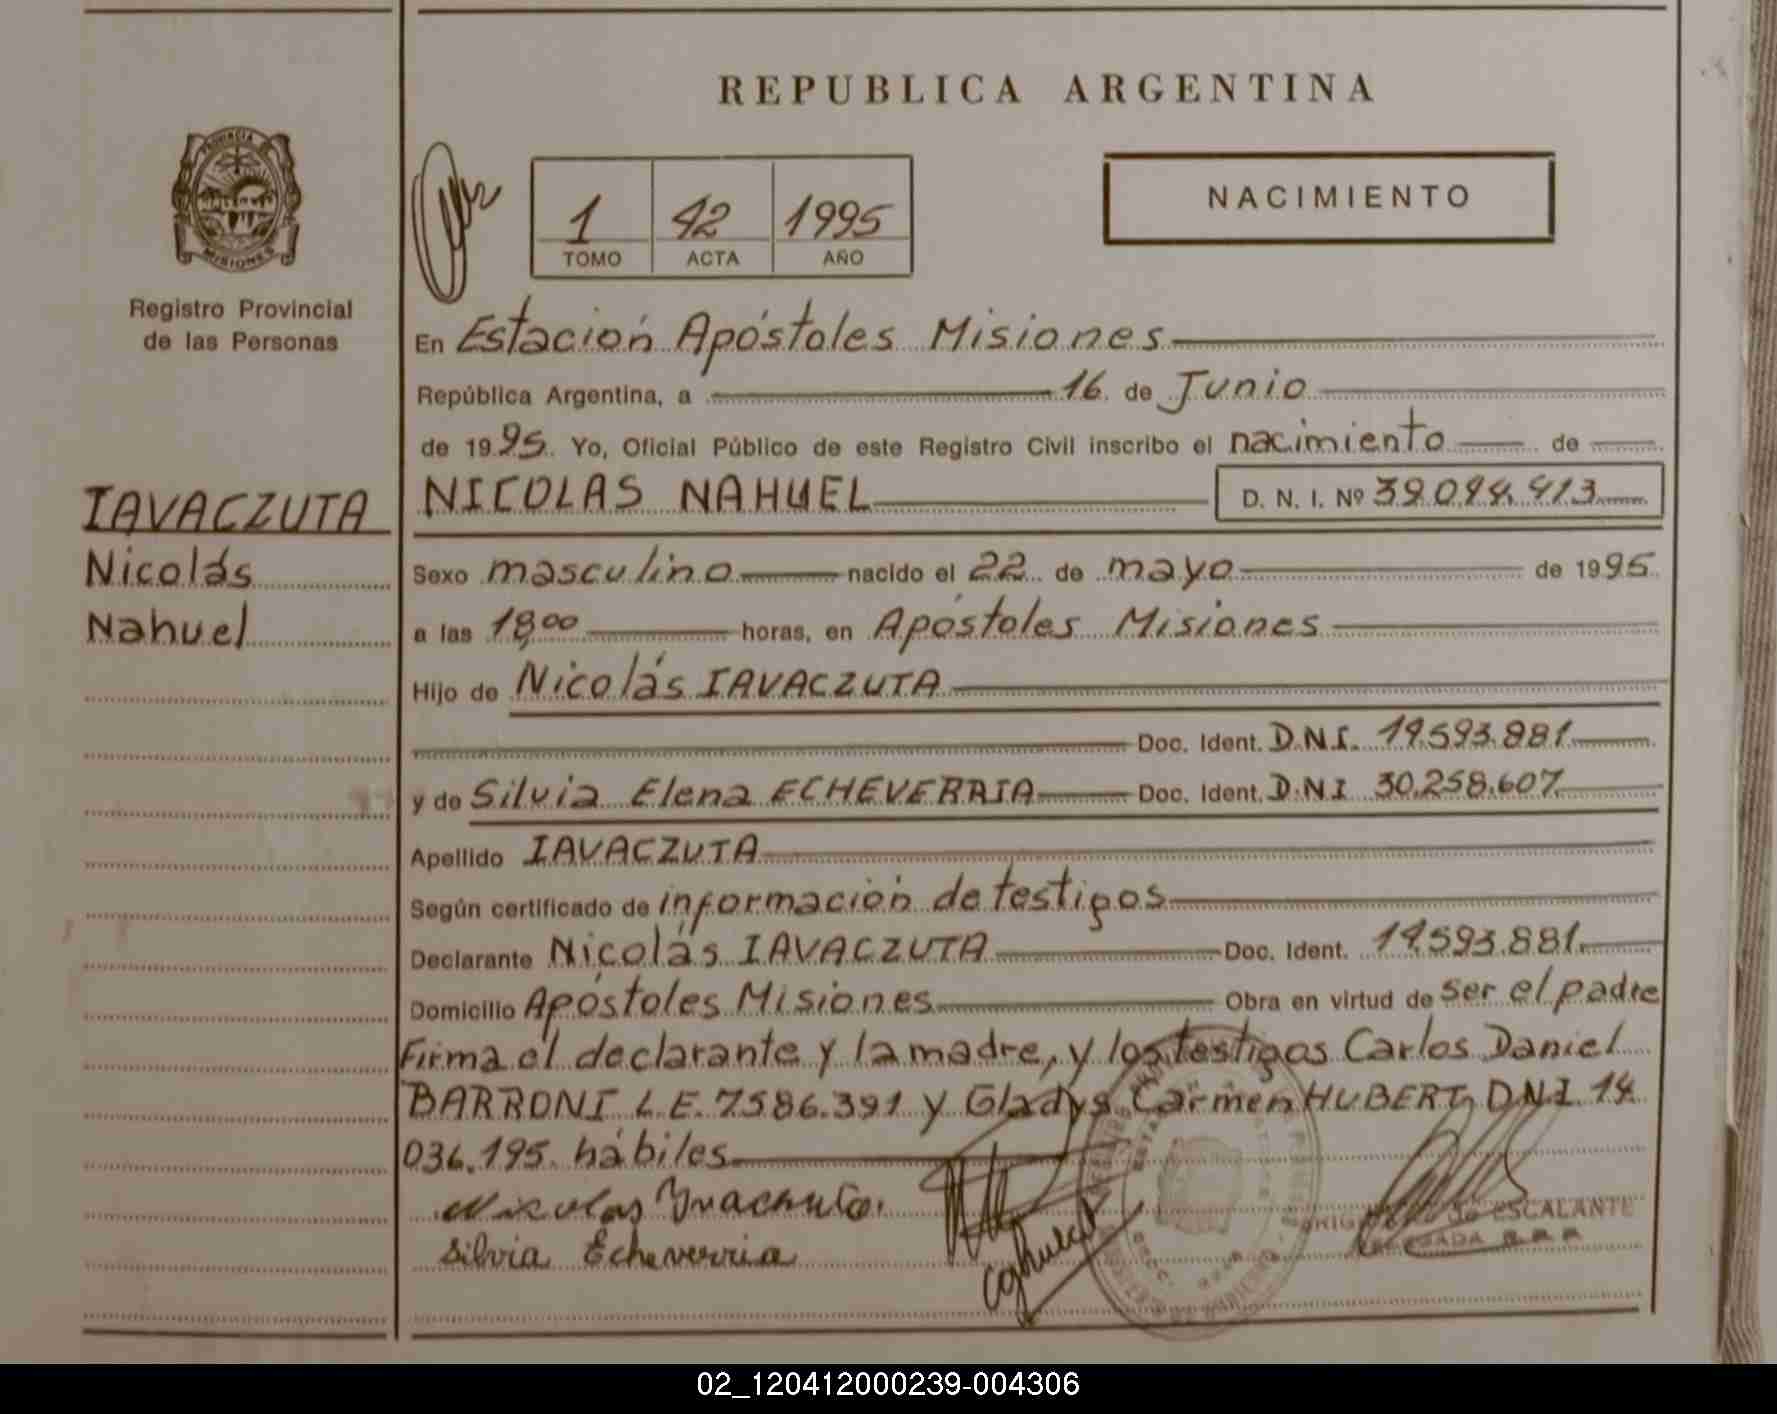 REPUBLICA ARGENTINA
PROVINCIA DE
MISIONES
Registro Provincial
de las Personas
1 42 1995
TOMO ACTA AÑO
NACIMIENTO
En Estación Apóstoles Misiones
República Argentina, a 16 de Junio
de 1995. Yo, Oficial Público de este Registro Civil inscribo el nacimiento de
IAVACZUTA
Nicolás
Nahuel
NICOLAS NAHUEL D. N. I. Nº
Sexo masculino nacido el 22 de mayo de 1995
a las 18,00 horas, en Apóstoles Misiones
Hijo de Nicolás IAVACZUTA
Doc. Ident. D.N.I. 14.593.881
y de Silvia Elena ECHEVERRIA Doc. Ident. D.N.I 30.258.607
Apellido IAVACZUTA
Según certificado de información de testigos
Declarante Nicolás IAVACZUTA Doc. Ident. 14.593.881
Domicilio Apóstoles Misiones Obra en virtud de ser el padre
Firma el declarante y la madre, y los testigos Carlos Daniel
BARRONI L.E. 7.586.391 y Gladys Carmen HUBERT D.N.I. 14.
036.195. hábiles
Silvia Echeverria
ESCALANTE
02_120412000239-004306